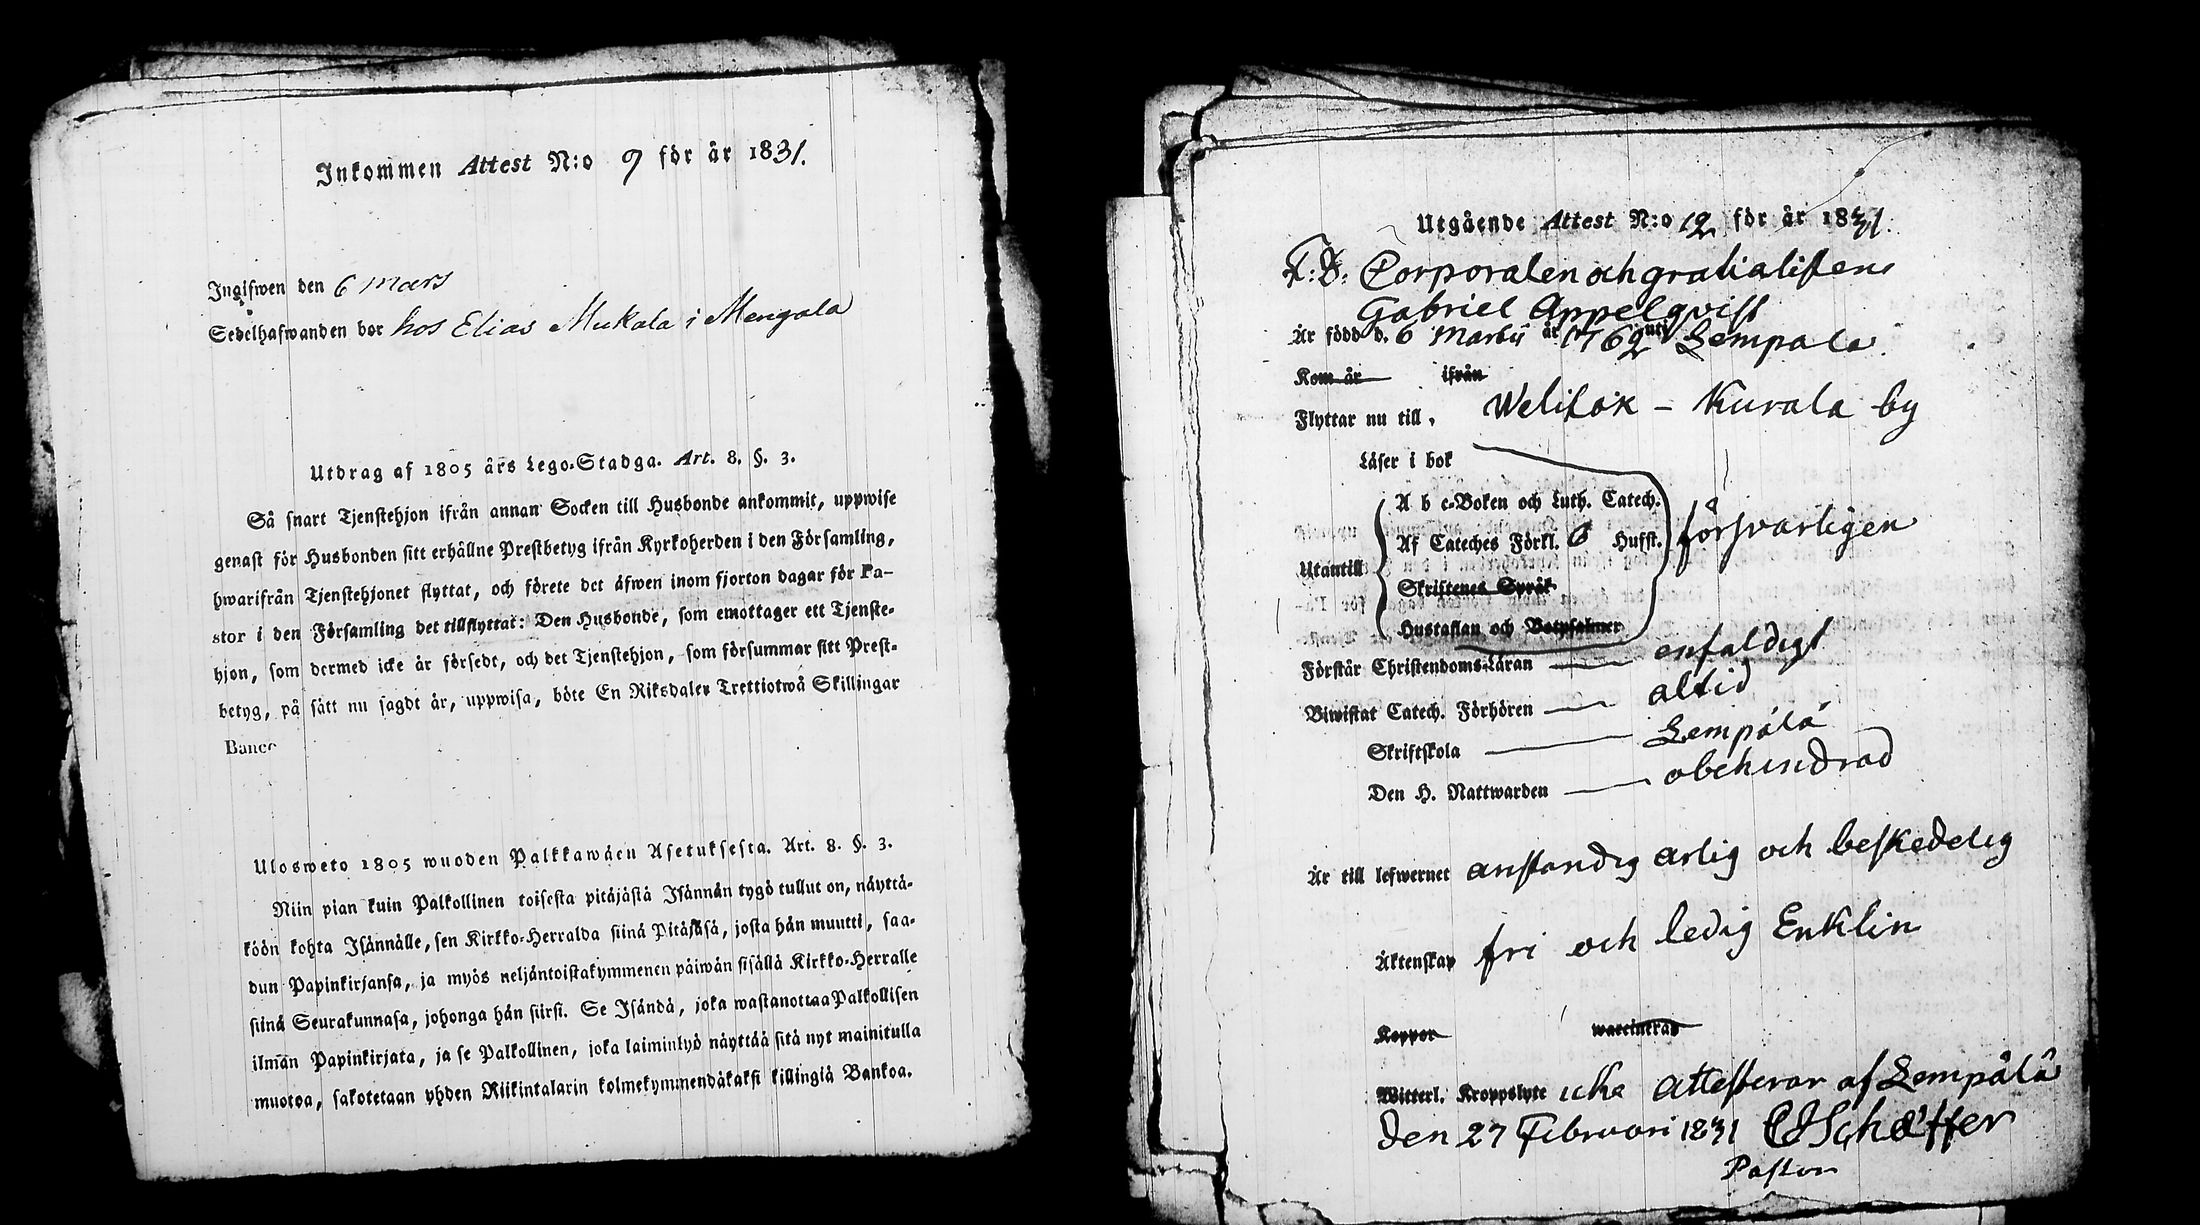 Inkommen Attest N:o 9 för år 1831.
Ingifwen den 6 mars
Sedelhafwanden bor hos Elias Mukala i Mengala
Utdrag af 1805 års Lego-Stadga. Art. 8. §. 3.
Så snart Tjenstehjon ifrån annan Socken till Husbonde ankommit, uppwise
genast för Husbonden sitt erhållne Prestbetyg ifrån Kyrkoherden i den Församling,
hwarifrån Tjenstehjonet flyttat, och förete det äfwen inom fjorton dagar för Pa-
stor i den Församling det tillflyttat: Den Husbonde, som emottager ett Tjenste-
hjon, som dermed icke är försedt, och det Tjenstehjon, som försummar sitt Prest-
betyg, på sätt nu sagdt är, uppwisa, böte En Riksdaler Trettiotwå Skillingar
Banco
Ulosweto 1805 wuoden Palkkawäen Asetuksesta. Art. 8. §. 3.
Niin pian kuin Palkollinen toisesta pitäjästä Isännän tygö tullut on, näyttä-
köön kohta Isännälle, sen Kirkko-Herralda siinä Pitäjäsä, josta hän muutti, saa-
dun Papinkirjansa, ja myös neljäntoistakymmenen päiwän sisällä Kirkko-Herralle
siinä Seurakunnasa, johonga hän siirsi. Se Isändä, joka wastanottaa Palkollisen
ilman Papinkirjata, ja se Palkollinen, joka laiminlyö näyttää sitä nyt mainitulla
muotoa, sakotetaan yhden Riikintalarin kolmekymmendäkaksi killingiä Bankoa.
Utgående Attest N:o 12 för år 1831
F:D: Corporalen och gratialisten
Gabriel Appelqvist
Är född d. 6 Martii år 1762 uti Lempala
Kom år ifrån
Flyttar nu till, Welilax - Kurala by
Läser i bok
A b c-Boken och Luth. Catech.
Af Cateches Förkl. 6 Hufst. försvarligen
Utantill
Skriftenes Språk
Hustaflan och Botpsalmer
Förstår Christendoms-Läran enfaldigt
Biwistat Catech. Förhören altid
Skriftskola Lempälä
Den H. Nattwarden obehindrad
Är till lefwernet anständig ärlig och beskedelig
Äktenskap fri och ledig Enklin
Koppor waccinerad
Witterl. Kroppslyte icke attesterar af Lempälä
den 27 Februari 1831 CJSchæffer
Pastor